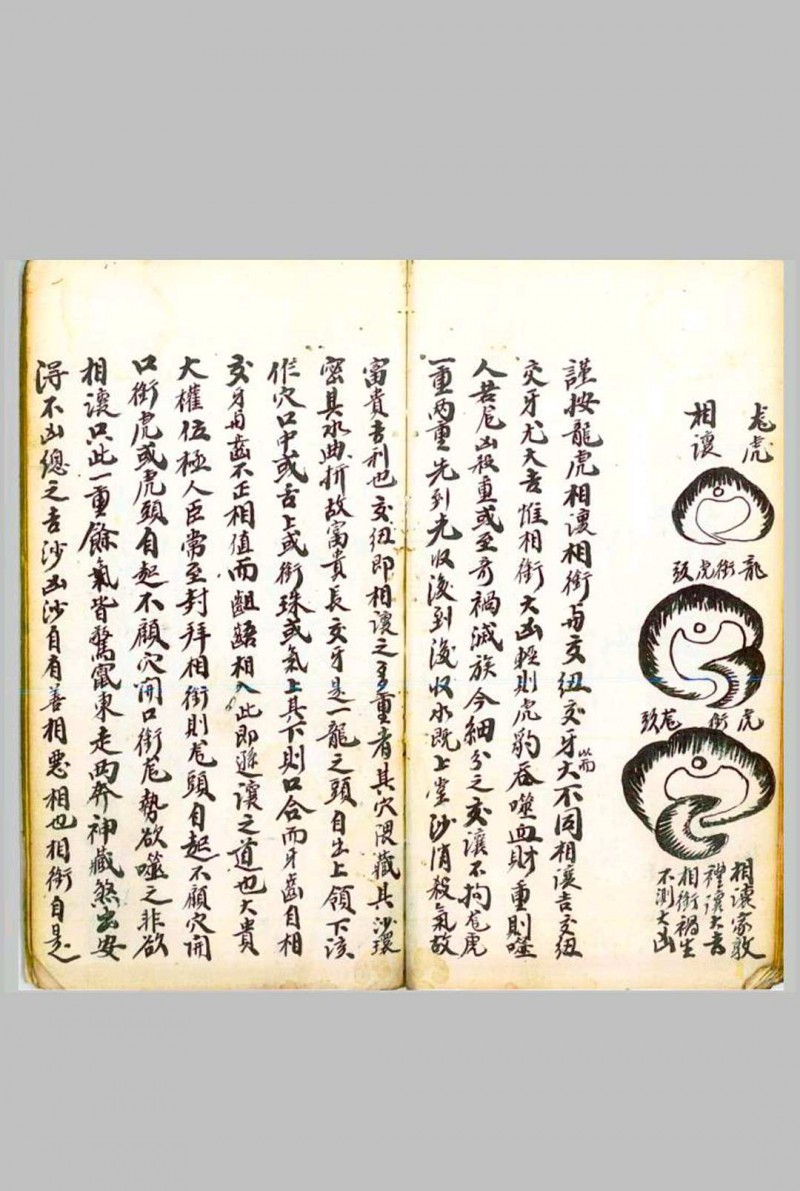 龙虎
相讓
龍銜虎頭
虎銜龙頭
相讓家敦
禮讓大吉
相銜禍生
不測大凶
謹按龍虎相讓相銜與交紐交牙大不同相讓吉交紐
而
交牙尤大吉惟相銜大凶輕則虎豹吞噬血財重則噬
人若龙凶殺重或至奇禍滅族今細分之交讓不拘龙虎
一重兩重先到先收後到後收水既上堂沙消殺氣故
富貴吉利也交紐即相讓之多重者其穴隈藏其沙環
密其水曲折故富貴長交牙是一龍之頭自出上頷下該
作穴口中或舌上或銜珠或氣上其下則口合而牙齒自相
交牙與齒不正相值而齟齬相入此即遜讓之道也大貴
大權位極人臣常至封拜相銜則龙頭自起不顧穴開
口銜虎或虎頭自起不顧穴開口銜龙勢欲噬之非欲
相讓只此一重餘氣皆驚竄東走西奔神藏煞出安
得不凶總之吉沙凶沙自有善相惡相也相銜自是